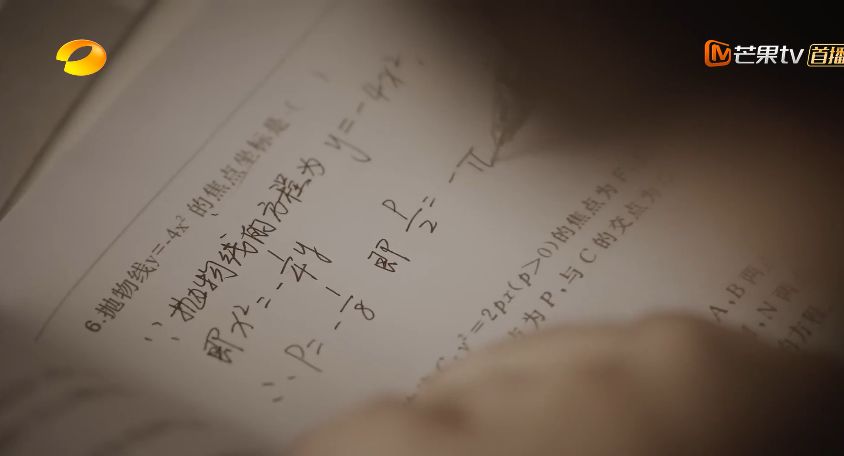 芒果tv 首播
6.抛物线y=-4x²的焦点坐标是( )
∵抛物线的方程为 y=-4x².
即 x²=-1/4y
∴P=-1/8 即 P/2=-π
C:y²=2px(p>0)的焦点为F,
点为P,与C的交点为
A,B两
M,N两
的方程